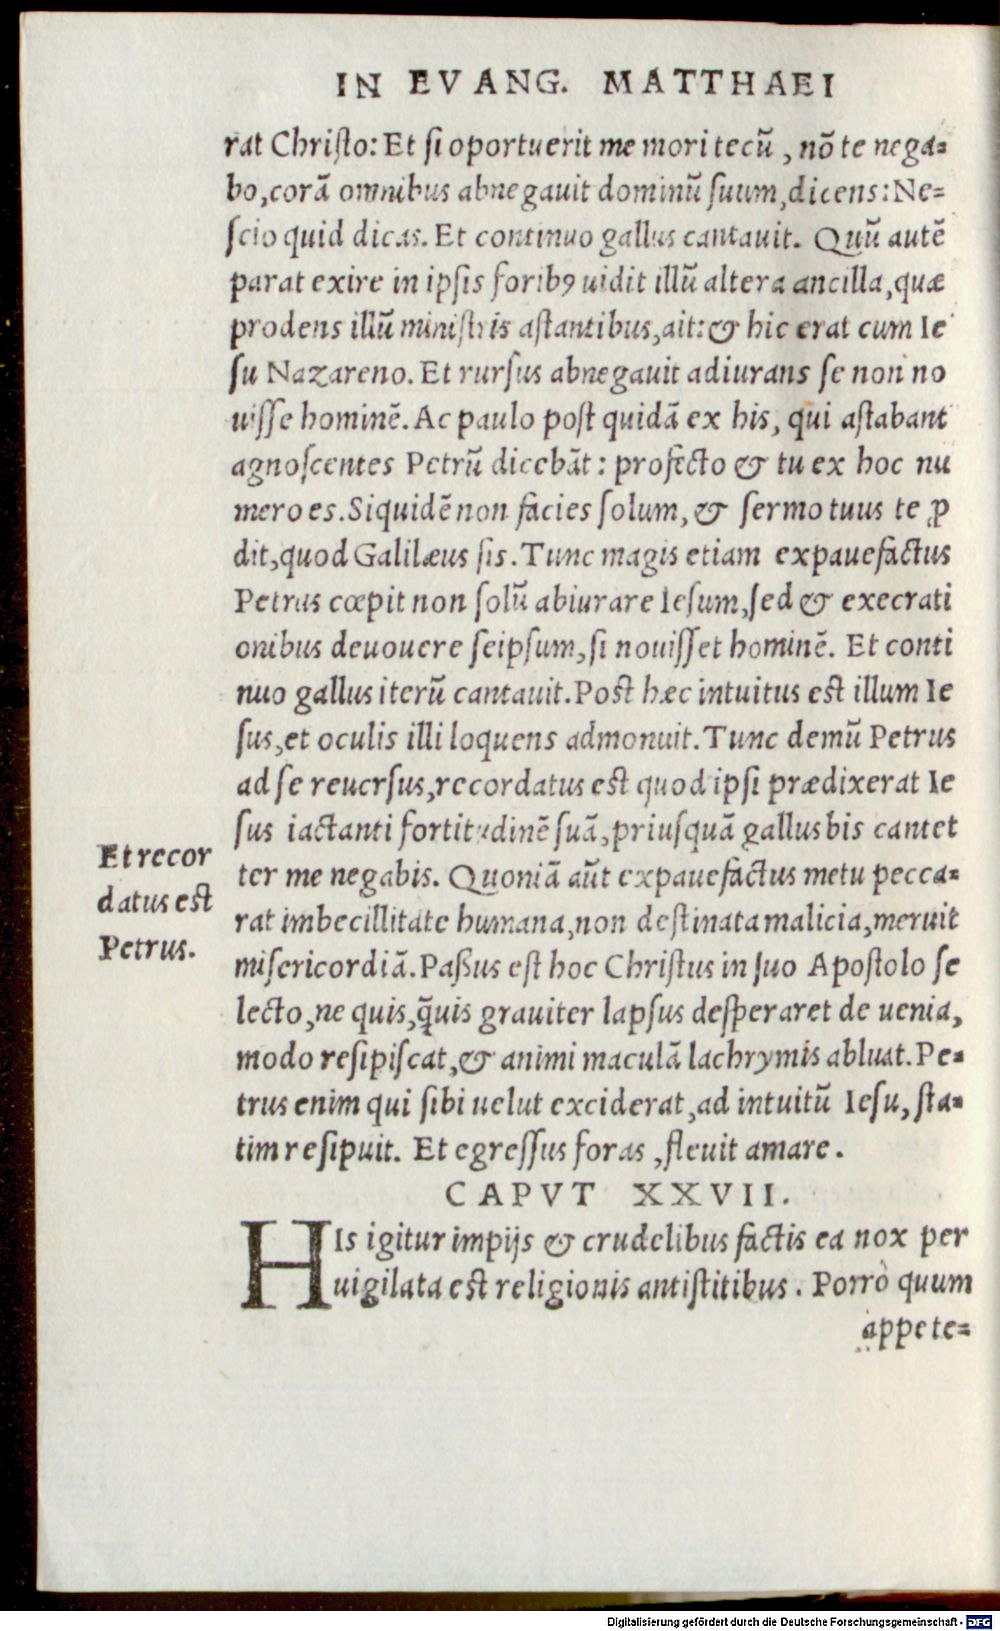 IN EVANG. MATTHAEI
rat Chriſto: Et ſi oportuerit me mori tecũ, nõ te nega=
bo, corã omnibus abnegauit dominũ ſuum, dicens: Ne=
ſcio quid dicas. Et continuo gallus cantauit. Quũ autẽ
parat exire in ipſis foribꝰ uidit illũ altera ancilla, quæ
prodens illũ miniſtris aſtantibus, ait: & hic erat cum Ie
ſu Nazareno. Et rurſus abnegauit adiurans ſe non no
uiſſe hominẽ. Ac paulo poſt quidã ex his, qui aſtabant
agnoſcentes Petrũ dicebãt: profecto & tu ex hoc nu
mero es. Siquidẽ non facies ſolum, & ſermo tuus te ꝓ
dit, quod Galilæus ſis. Tunc magis etiam expauefactus
Petrus cœpit non ſolũ abiurare Ieſum, ſed & execrati
onibus deuouere ſeipſum, ſi nouiſſet hominẽ. Et conti
nuo gallus iterũ cantauit. Poſt hæc intuitus eſt illum Ie
ſus, et oculis illi loquens admonuit. Tunc demũ Petrus
ad ſe reuerſus, recordatus eſt quod ipſi prædixerat Ie
ſus iactanti fortitudinẽ ſuã, priuſquã gallus bis cantet
ter me negabis. Quoniã aũt expauefactus metu pecca=
rat imbecillitate humana, non deſtinata malicia, meruit
miſericordiã. Paßus eſt hoc Chriſtus in ſuo Apoſtolo ſe
lecto, ne quis, q̃uis grauiter lapſus deſperaret de uenia,
modo reſipiſcat, & animi maculã lachrymis abluat. Pe=
trus enim qui ſibi uelut exciderat, ad intuitũ Ieſu, ſta=
tim reſipuit. Et egreſſus foras, fleuit amare.
Et recor
datus eſt
Petrus.
CAPVT XXVII.
HIs igitur impijs & crudelibus factis ea nox per
uigilata eſt religionis antiſtitibus. Porrò quum
appete=
Digitalisierung gefördert durch die Deutsche Forschungsgemeinschaft - DFG